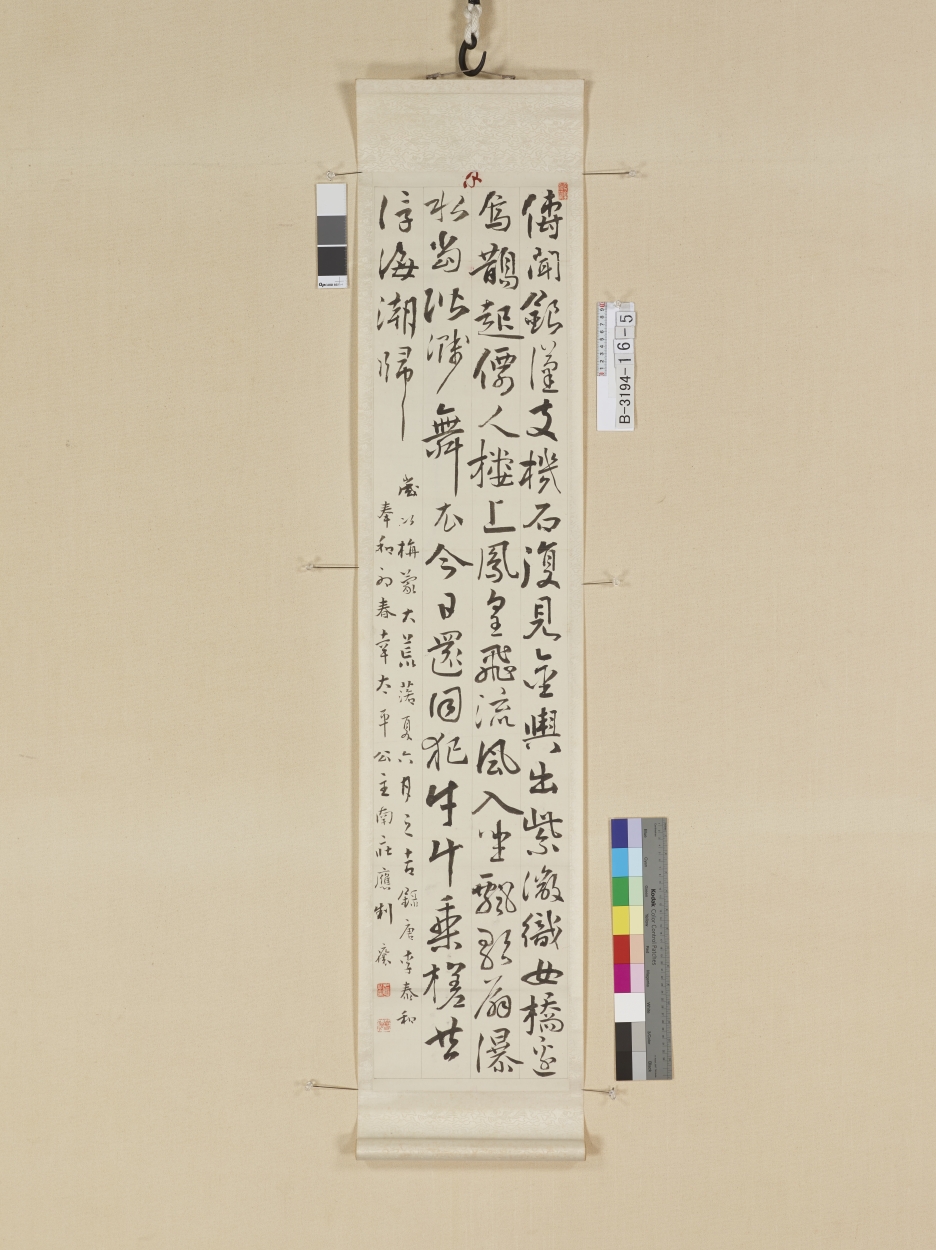 傳聞銀漢支機石復見金輿出紫微織女橋邊
烏鵲起僊人樓上鳳皇飛流風入坐飄歌扇瀑
水當階濺舞衣今日還同犯牛斗乘槎共
浮海潮歸
歲以旃蒙大荒落夏六月之吉錄唐李泰和
奉和初春幸太平公主南莊應制
B-3194-16-5
Kodak Color Control Patches